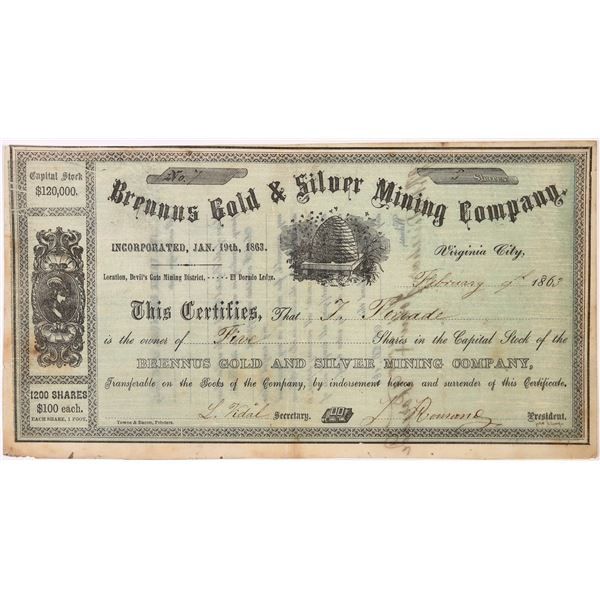 Capital Stock
$120,000.
No. 7
5 Shares
Brennus Gold & Silver Mining Company.
INCORPORATED, JAN. 19th, 1863.
Virginia City,
Location, Devil's Gate Mining District, ----- El Dorado Ledge.
February 9th 1863
This Certifies, That
is the owner of Five Shares in the Capital Stock of the
BRENNUS GOLD AND SILVER MINING COMPANY,
Transferable on the Books of the Company, by indorsement hereon and surrender of this Certificate.
1200 SHARES
$100 each.
EACH SHARE, 1 FOOT.
L. Vidal Secretary. President.
Towne & Bacon, Printers.